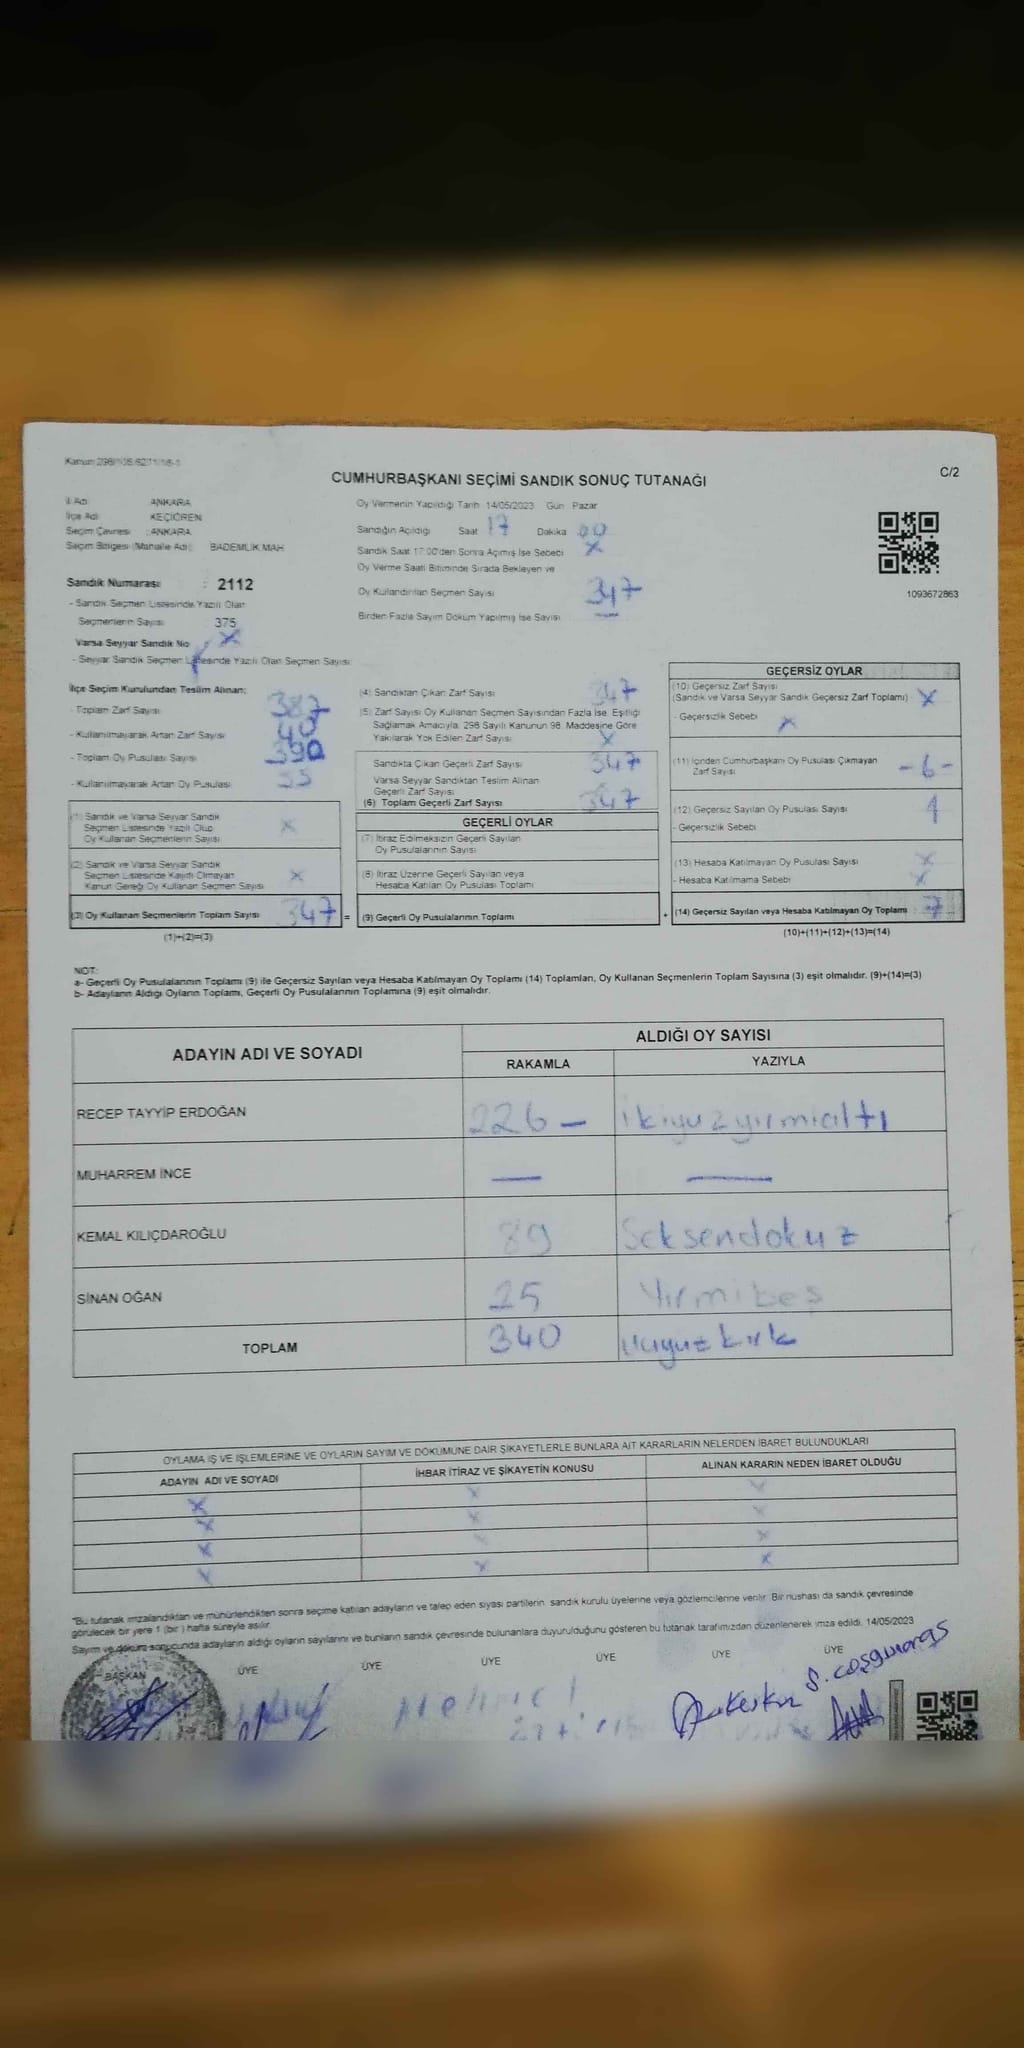 CUMHURBAŞKANI SEÇİMİ SANDIK SONUÇ TUTANAĞI
C/2
İl Adı ANKARA
İlçe Adı KEÇİÖREN
Seçim Çevresi : ANKARA
Seçim Bölgesi (Mahalle Adı) BADEMLİK MAH
Sandık Numarası : 2112
- Sandık Seçmen Listesinde Yazılı Olan
Seçmenlerin Sayısı 375
Varsa Seyyar Sandık No X
- Seyyar Sandık Seçmen Listesinde Yazılı Olan Seçmen Sayısı
Oy Vermenin Yapıldığı Tarih 14/05/2023 Gün Pazar
Sandığın Açıldığı Saat 17 Dakika 00
Sandık Saat 17:00'den Sonra Açılmış İse Sebebi X
Oy Verme Saati Bitiminde Sırada Bekleyen ve
Oy Kullandırılan Seçmen Sayısı 347
Birden Fazla Sayım Döküm Yapılmış İse Sayısı —
1093672863
İlçe Seçim Kurulundan Teslim Alınan:
- Toplam Zarf Sayısı 387
- Kullanılmayarak Artan Zarf Sayısı 40
- Toplam Oy Pusulası Sayısı 390
- Kullanılmayarak Artan Oy Pusulası
(1) Sandık ve Varsa Seyyar Sandık
Seçmen Listesinde Yazılı Olup
Oy Kullanan Seçmenlerin Sayısı X
(2) Sandık ve Varsa Seyyar Sandık
Seçmen Listesinde Kayıtlı Olmayan
Kanun Gereği Oy Kullanan Seçmen Sayısı X
(3) Oy Kullanan Seçmenlerin Toplam Sayısı 347 =
(1)+(2)=(3)
(4) Sandıktan Çıkan Zarf Sayısı 347
(5) Zarf Sayısı Oy Kullanan Seçmen Sayısından Fazla İse, Eşitliği
Sağlamak Amacıyla, 298 Sayılı Kanunun 98. Maddesine Göre
Yakılarak Yok Edilen Zarf Sayısı X
Sandıkta Çıkan Geçerli Zarf Sayısı 347
Varsa Seyyar Sandıktan Teslim Alınan
Geçerli Zarf Sayısı
(6) Toplam Geçerli Zarf Sayısı 347
GEÇERLİ OYLAR
(7) İtiraz Edilmeksizin Geçerli Sayılan
Oy Pusulalarının Sayısı
(8) İtiraz Üzerine Geçerli Sayılan veya
Hesaba Katılan Oy Pusulası Toplamı
(9) Geçerli Oy Pusulalarının Toplamı +
GEÇERSİZ OYLAR
(10) Geçersiz Zarf Sayısı
(Sandık ve Varsa Seyyar Sandık Geçersiz Zarf Toplamı) X
- Geçersizlik Sebebi X
(11) İçinden Cumhurbaşkanı Oy Pusulası Çıkmayan
Zarf Sayısı -6-
(12) Geçersiz Sayılan Oy Pusulası Sayısı 1
- Geçersizlik Sebebi
(13) Hesaba Katılmayan Oy Pusulası Sayısı X
- Hesaba Katılmama Sebebi X
(14) Geçersiz Sayılan veya Hesaba Katılmayan Oy Toplamı 7
(10)+(11)+(12)+(13)=(14)
NOT:
a- Geçerli Oy Pusulalarının Toplamı (9) ile Geçersiz Sayılan veya Hesaba Katılmayan Oy Toplamı (14) Toplamları, Oy Kullanan Seçmenlerin Toplam Sayısına (3) eşit olmalıdır. (9)+(14)=(3)
b- Adayların Aldığı Oyların Toplamı, Geçerli Oy Pusulalarının Toplamına (9) eşit olmalıdır.
ADAYIN ADI VE SOYADI ALDIĞI OY SAYISI
RAKAMLA YAZIYLA
RECEP TAYYİP ERDOĞAN 226 — ikiyuzyirmialtı
MUHARREM İNCE — —
KEMAL KILIÇDAROĞLU 89 Seksendokuz
SİNAN OĞAN 25 Yirmibeş
TOPLAM 340 üçyüzkırk
OYLAMA İŞ VE İŞLEMLERİNE VE OYLARIN SAYIM VE DÖKÜMÜNE DAİR ŞİKAYETLERLE BUNLARA AİT KARARLARIN NELERDEN İBARET BULUNDUKLARI
ADAYIN ADI VE SOYADI İHBAR İTİRAZ VE ŞİKAYETİN KONUSU ALINAN KARARIN NEDEN İBARET OLDUĞU
X X X
X X X
X X X
X X X
"Bu tutanak imzalandıktan ve mühürlendikten sonra seçime katılan adayların ve talep eden siyasi partilerin, sandık kurulu üyelerine veya gözlemcilerine verilir. Bir nushası da sandık çevresinde
görülecek bir yere 1 (bir) hafta süreyle asılır.
Sayım ve döküm sonucunda adayların aldığı oyların sayılarını ve bunların sandık çevresinde bulunanlara duyurulduğunu gösteren bu tutanak tarafımızdan düzenlenerek imza edildi. 14/05/2023
BAŞKAN ÜYE ÜYE ÜYE ÜYE ÜYE ÜYE